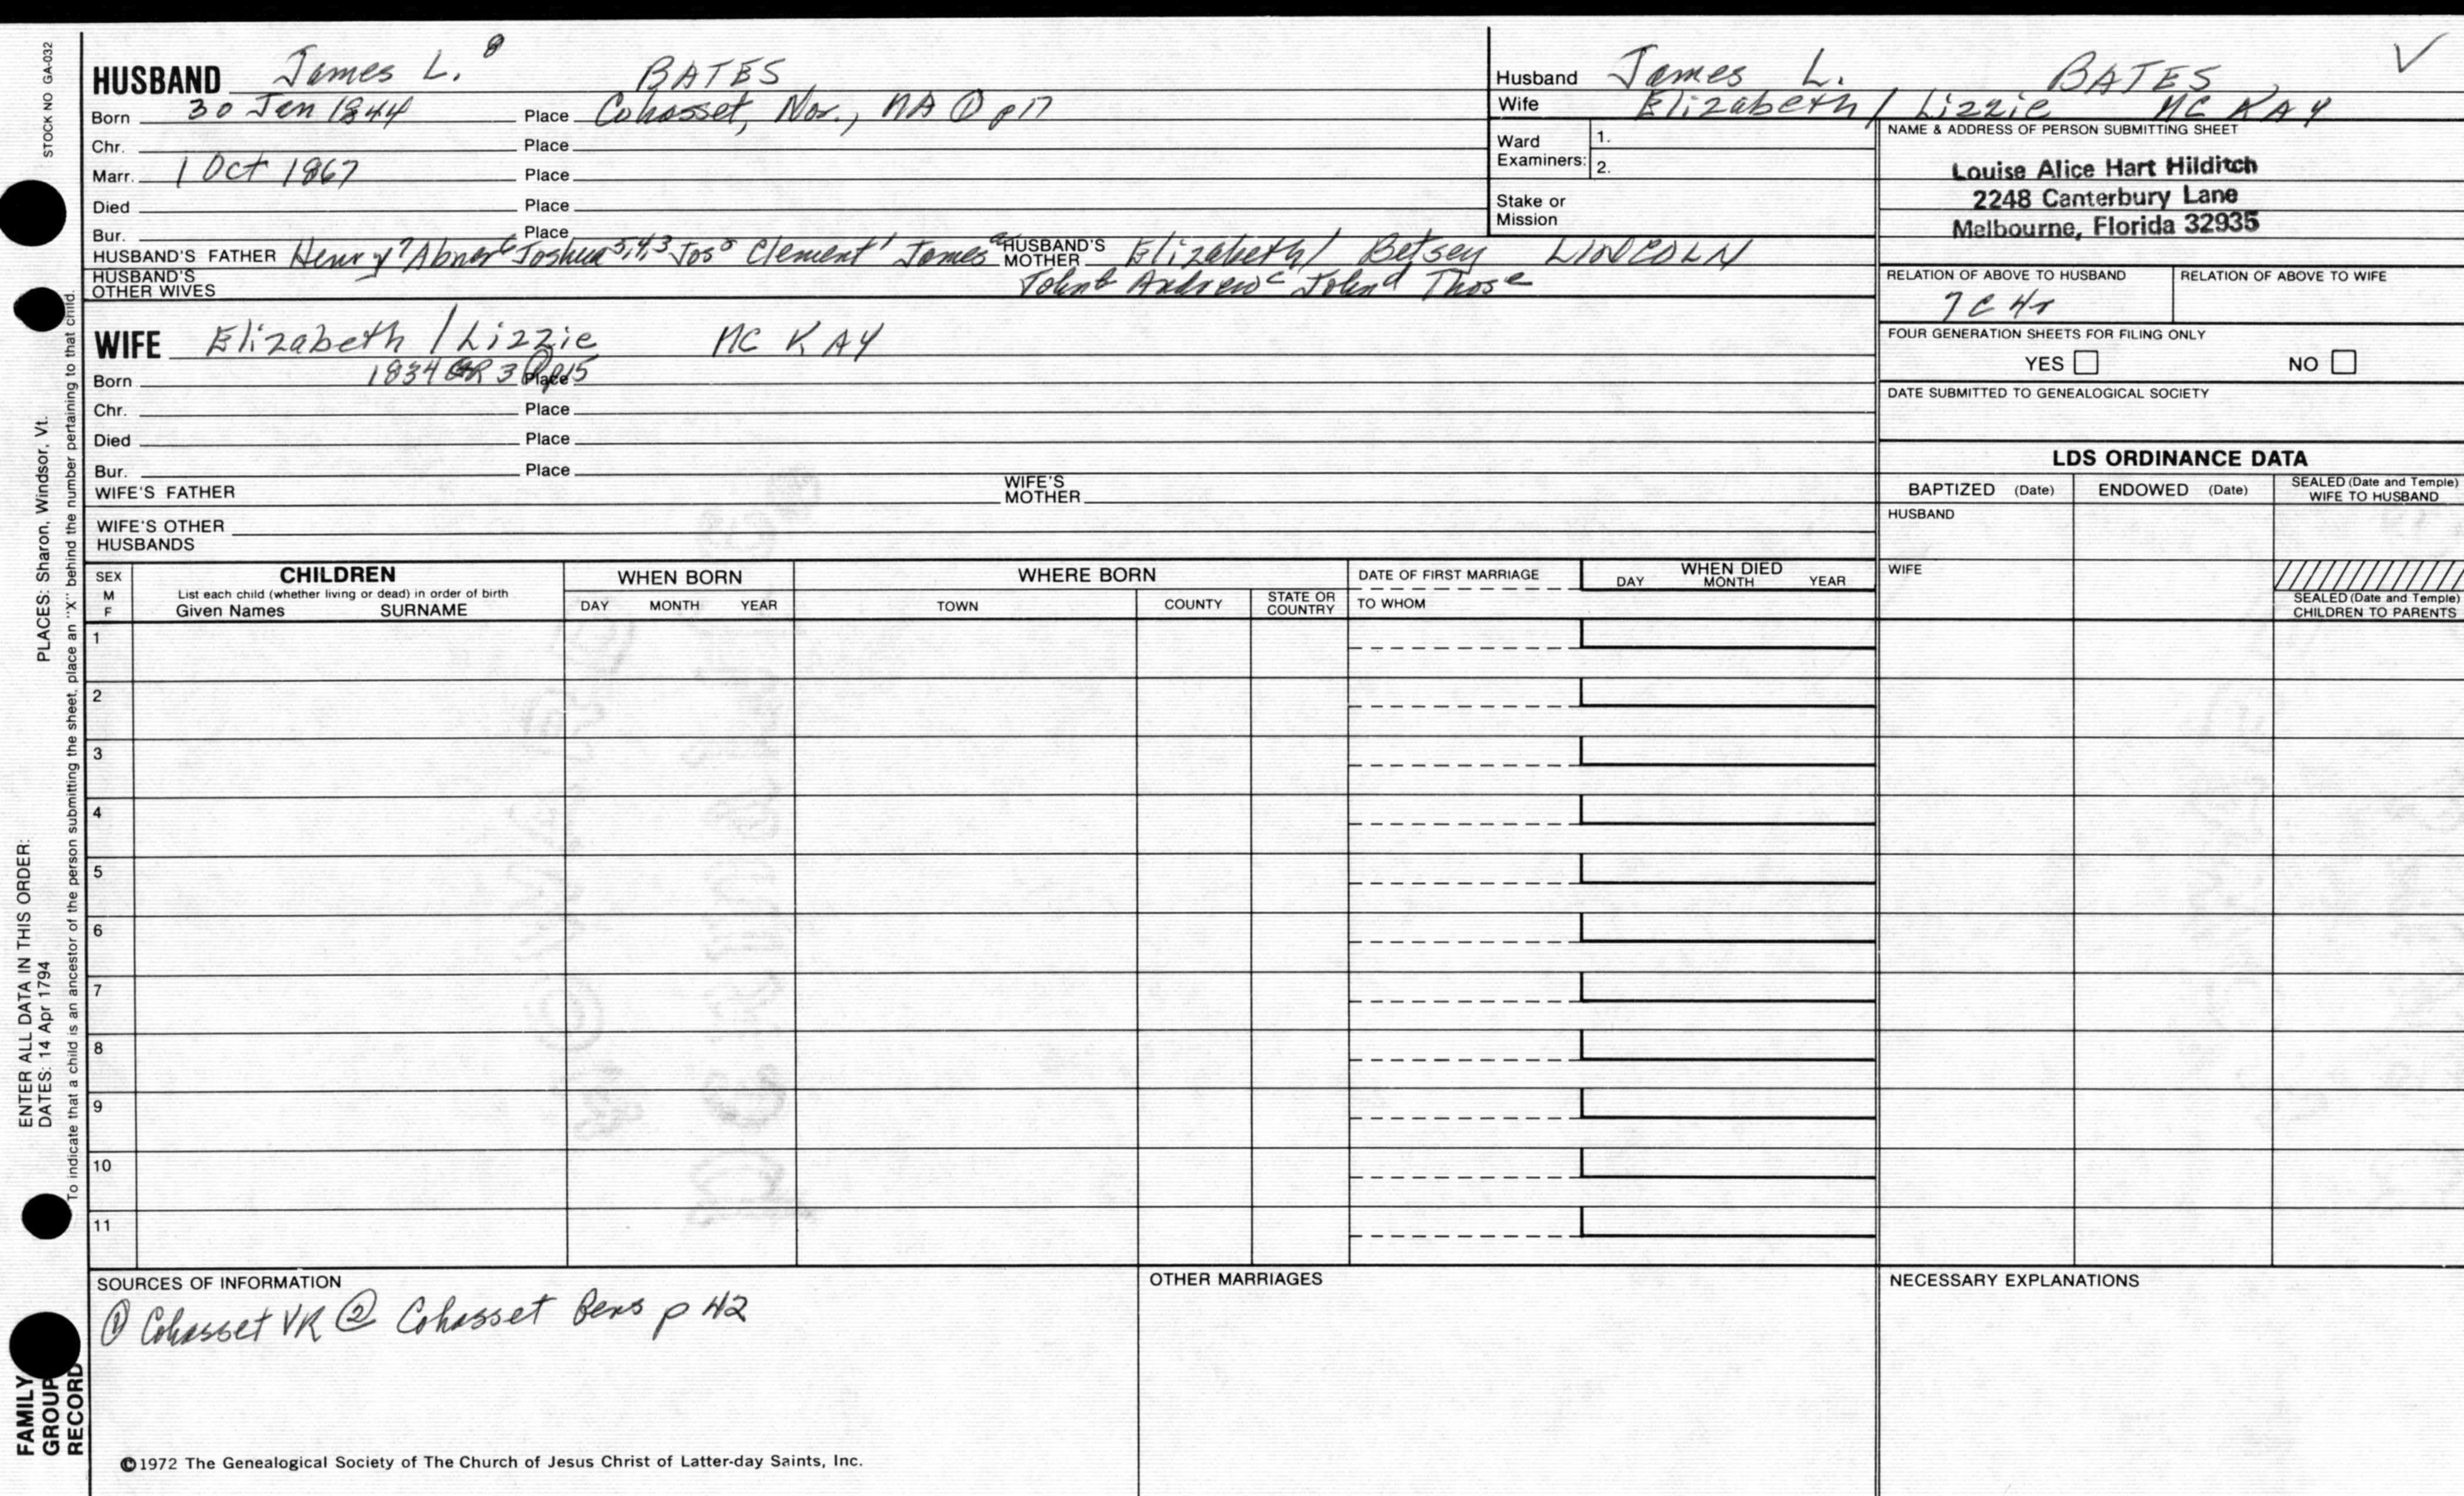 STOCK NO GA-032
HUSBAND James L. 8 BATES
Born 30 Jan 1844 Place Cohasset, Nor., MA ① p17
Chr. Place
Marr. 1 Oct 1867 Place
Died Place
Bur. Place
HUSBAND'S FATHER Henry7 Abner6 Joshua5,4,3 Jos2 Clement1 James a HUSBAND'S MOTHER Elizabeth/ Betsey LINCOLN
HUSBAND'S OTHER WIVES John b Andrew c John d Thos e
WIFE Elizabeth / Lizzie MC KAY
Born 1834 GR 3 ① p15 Place
Chr. Place
Died Place
Bur. Place
WIFE'S FATHER WIFE'S MOTHER
WIFE'S OTHER HUSBANDS
Husband James L. BATES
Wife Elizabeth / Lizzie MC KAY
Ward Examiners: 1.
2.
Stake or Mission
NAME & ADDRESS OF PERSON SUBMITTING SHEET
Louise Alice Hart Hilditch
2248 Canterbury Lane
Melbourne, Florida 32935
RELATION OF ABOVE TO HUSBAND RELATION OF ABOVE TO WIFE
7C 4r
FOUR GENERATION SHEETS FOR FILING ONLY
YES NO
DATE SUBMITTED TO GENEALOGICAL SOCIETY
LDS ORDINANCE DATA
BAPTIZED (Date) ENDOWED (Date) SEALED (Date and Temple) WIFE TO HUSBAND
HUSBAND
WIFE
SEALED (Date and Temple) CHILDREN TO PARENTS
SEX M F
CHILDREN
List each child (whether living or dead) in order of birth
Given Names SURNAME
WHEN BORN
DAY MONTH YEAR
WHERE BORN
TOWN COUNTY STATE OR COUNTRY
DATE OF FIRST MARRIAGE
TO WHOM
WHEN DIED
DAY MONTH YEAR
1
2
3
4
5
6
7
8
9
10
11
SOURCES OF INFORMATION
① Cohasset VR ② Cohasset Gens p 42
OTHER MARRIAGES
NECESSARY EXPLANATIONS
©1972 The Genealogical Society of The Church of Jesus Christ of Latter-day Saints, Inc.
ENTER ALL DATA IN THIS ORDER:
DATES: 14 Apr 1794 PLACES: Sharon, Windsor, Vt.
To indicate that a child is an ancestor of the person submitting the sheet, place an "X" behind the number pertaining to that child.
FAMILY
GROUP
RECORD